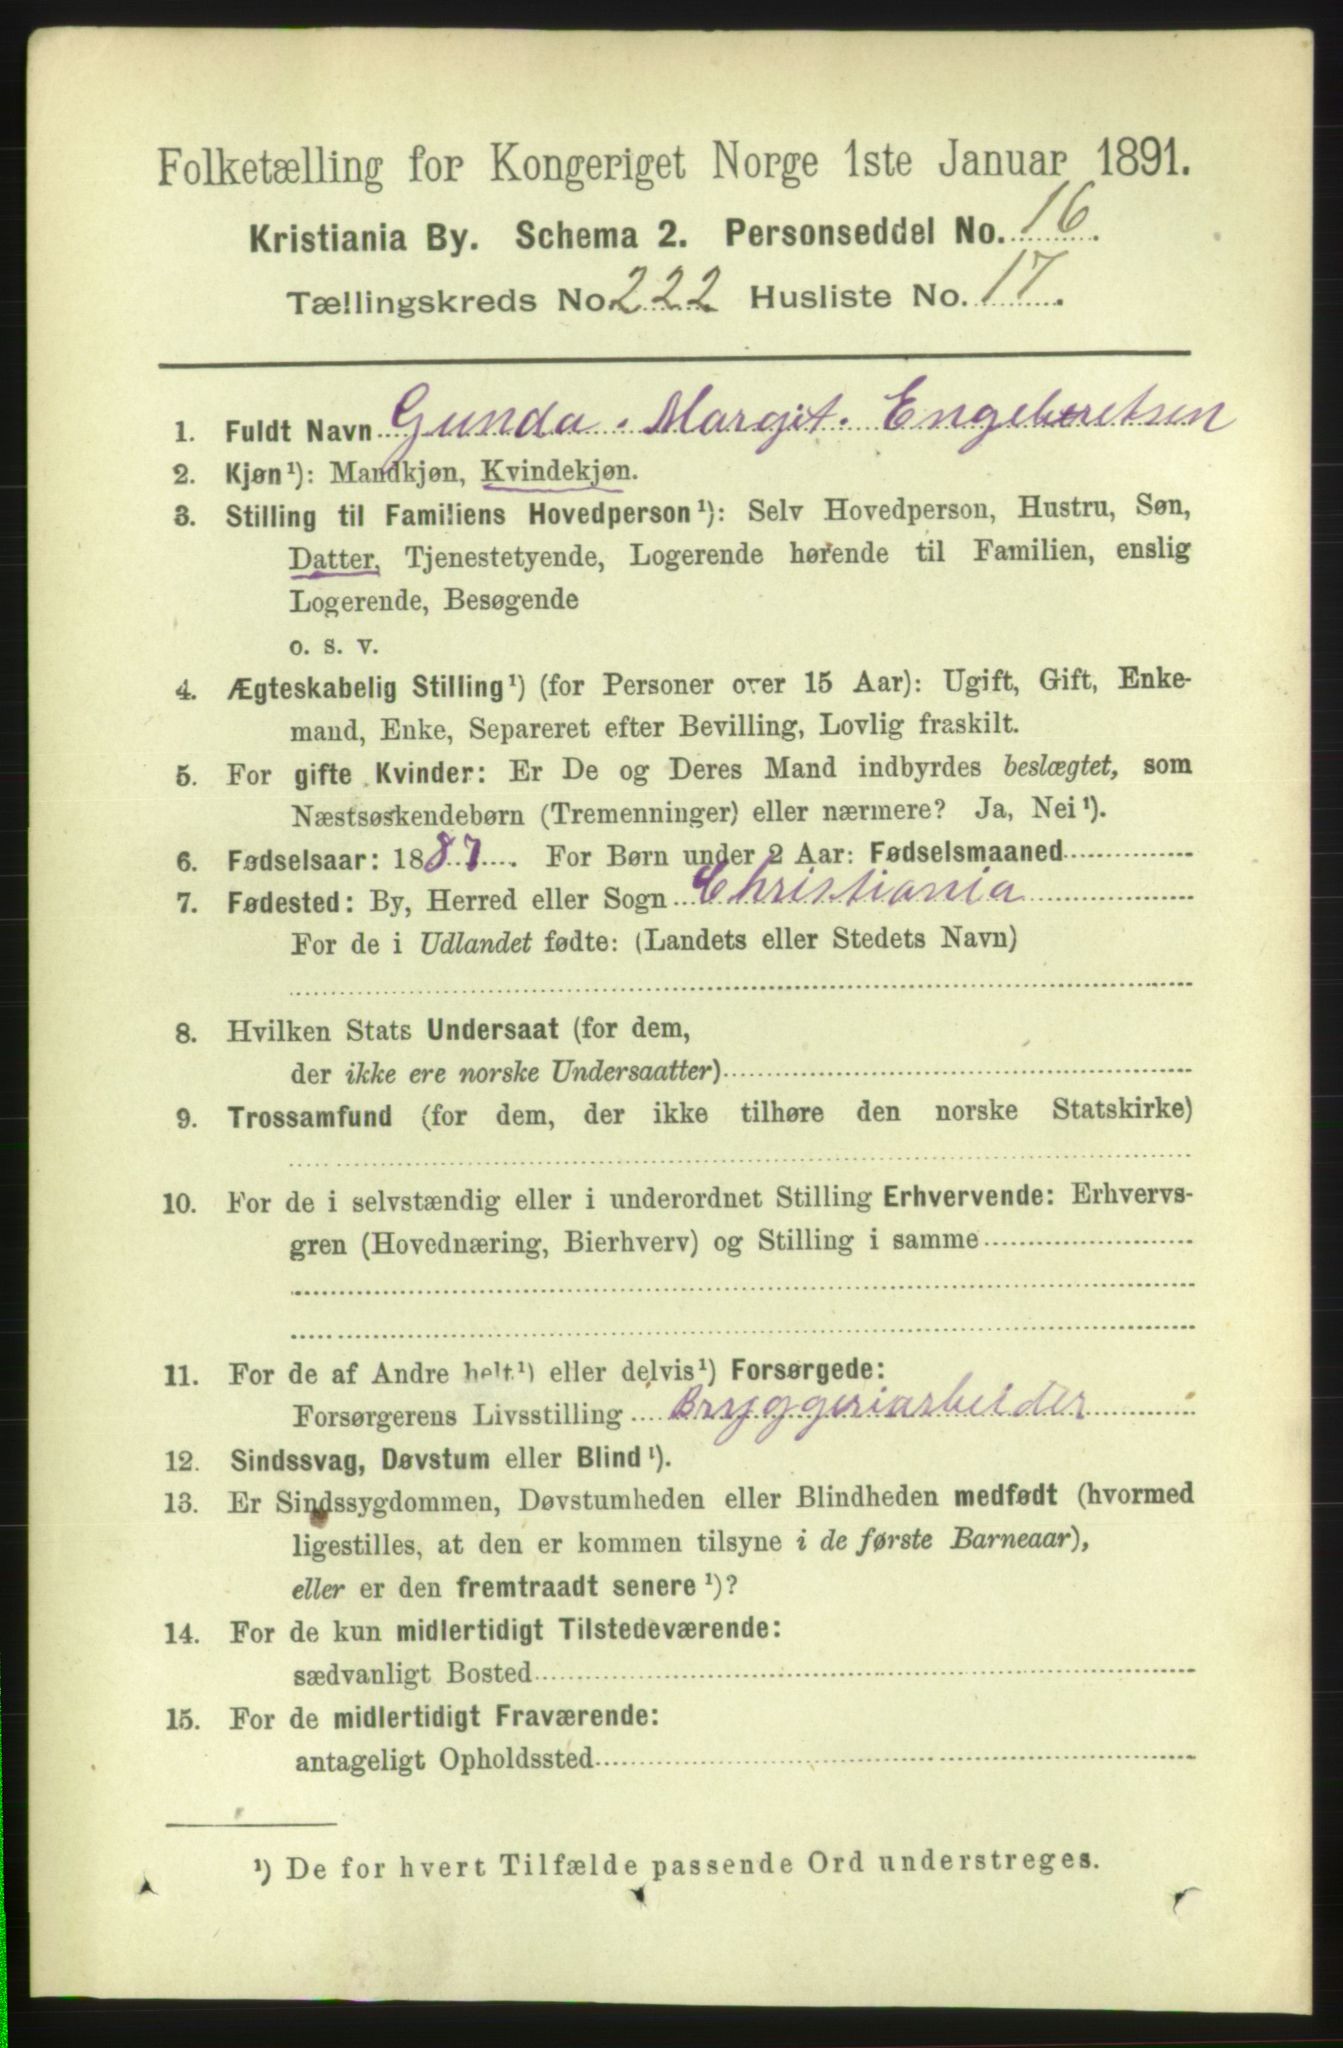 Folketælling for Kongeriget Norge 1ste Januar 1891.
Kristiania By. Schema 2. Personseddel No. 16.
Tællingskreds No. 222 Husliste No. 17.
1. Fuldt Navn Gunda. Margit. Engebretsen
2. Kjøn¹): Mandkjøn, Kvindekjøn.
3. Stilling til Familiens Hovedperson¹): Selv Hovedperson, Hustru, Søn,
Datter, Tjenestetyende, Logerende hørende til Familien, enslig
Logerende, Besøgende
o. s. v.
4. Ægteskabelig Stilling¹) (for Personer over 15 Aar): Ugift, Gift, Enke-
mand, Enke, Separeret efter Bevilling, Lovlig fraskilt.
5. For gifte Kvinder: Er De og Deres Mand indbyrdes beslægtet, som
Næstsøskendebørn (Tremenninger) eller nærmere? Ja, Nei¹).
6. Fødselsaar: 1887. For Børn under 2 Aar: Fødselsmaaned
7. Fødested: By, Herred eller Sogn Christiania
For de i Udlandet fødte: (Landets eller Stedets Navn)
8. Hvilken Stats Undersaat (for dem,
der ikke ere norske Undersaatter)
9. Trossamfund (for dem, der ikke tilhøre den norske Statskirke)
10. For de i selvstændig eller i underordnet Stilling Erhvervende: Erhvervs-
gren (Hovednæring, Bierhverv) og Stilling i samme
11. For de af Andre helt¹) eller delvis¹) Forsørgede:
Forsørgerens Livsstilling Bryggeriarbeider
12. Sindssvag, Døvstum eller Blind¹).
13. Er Sindssygdommen, Døvstumheden eller Blindheden medfødt (hvormed
ligestilles, at den er kommen tilsyne i de første Barneaar),
eller er den fremtraadt senere¹)?
14. For de kun midlertidigt Tilstedeværende:
sædvanligt Bosted
15. For de midlertidigt Fraværende:
antageligt Opholdssted
¹) De for hvert Tilfælde passende Ord understreges.